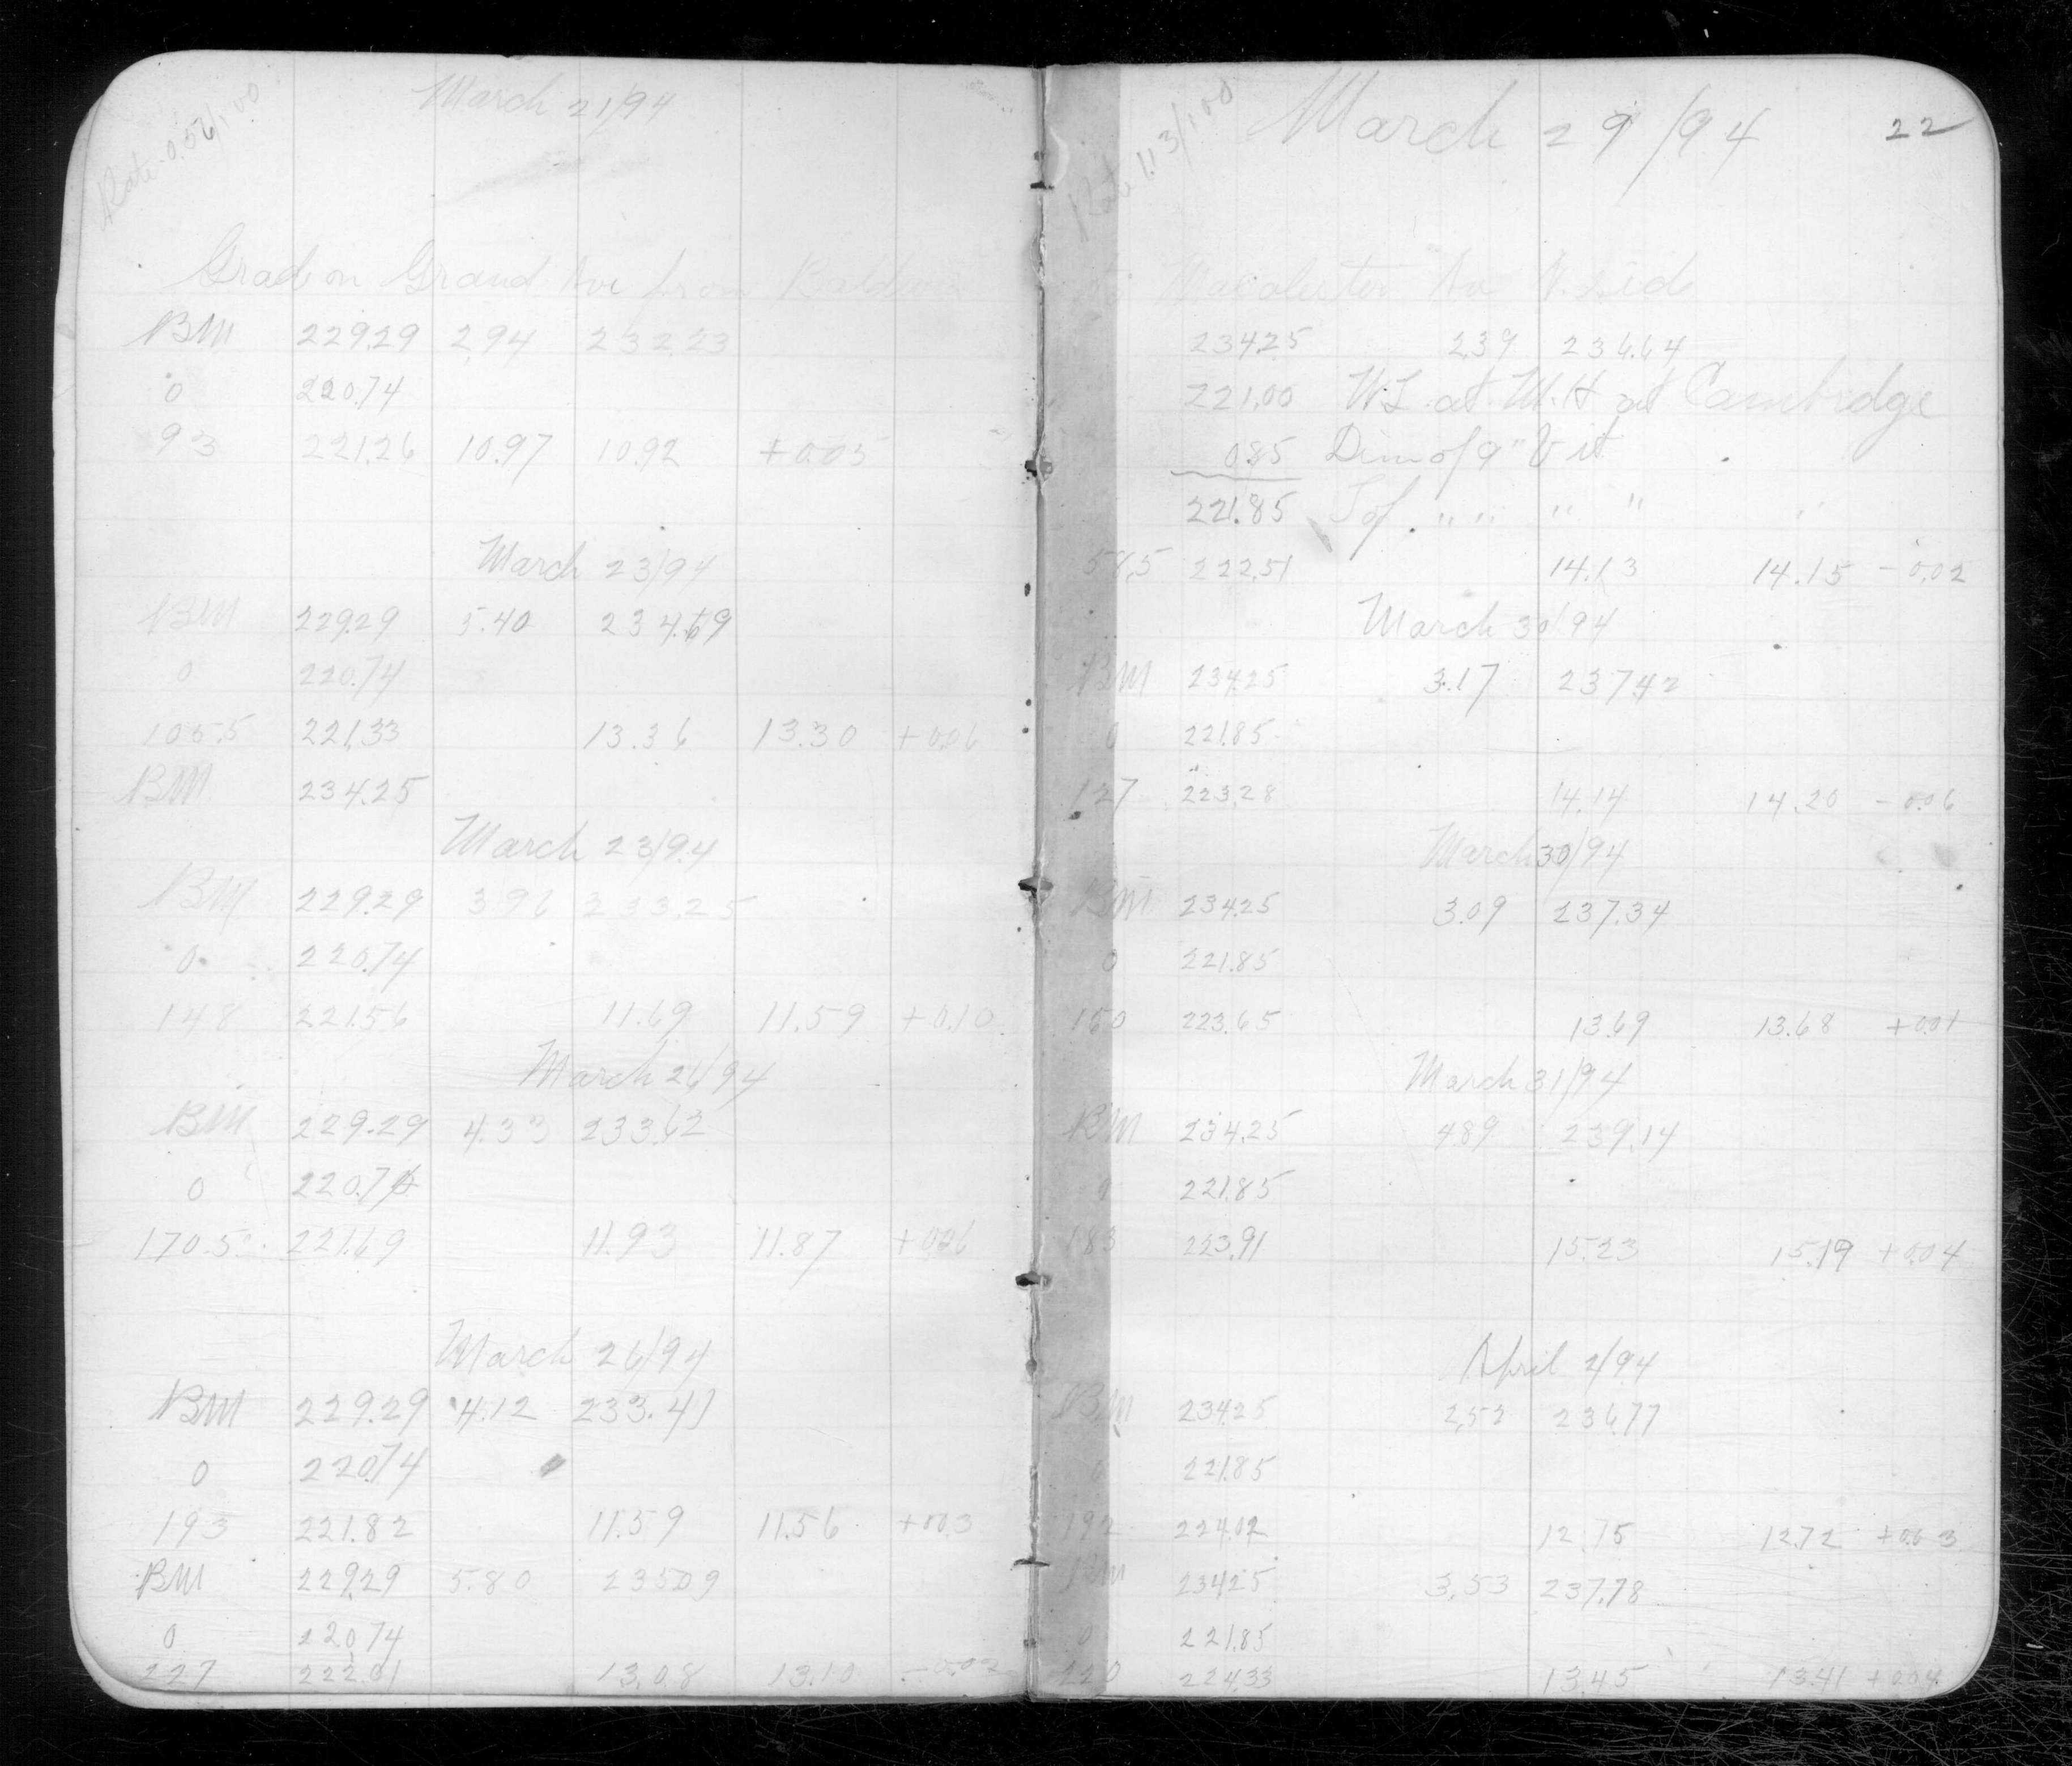 March 21/94
Rate 0.56/100
Grade on Grand Ave from Baldwin
BM 229.29 2.94 232.23
0 220.74
93 221.26 10.97 10.92 +0.05
March 23/94
BM 229.29 5.40 234.69
0 220.74
105.5 221.33 13.36 13.30 +0.06
BM 234.25
March 23/94
BM 229.29 3.96 233.25
0 220.74
148 221.56 11.69 11.59 +0.10
March 26/94
BM 229.29 4.33 233.62
0 220.74
170.5 221.69 11.93 11.87 +0.06
March 26/94
BM 229.29 4.12 233.41
0 220.74
193 221.82 11.59 11.56 +0.03
BM 229.29 5.80 235.09
0 220.74
227 222.01 13.08 13.10 -0.02
March 29/94 22
Rate 1.13/100
to Macalester Av N. Side
234.25 2.39 236.64
221.00 W.L. at M.H at Cambridge
0.85 Dim of 9" Vit
221.85 of " " " "
58.5 222.51 14.13 14.15 -0.02
March 30/94
BM 234.25 3.17 237.42
0 221.85
127 223.28 14.14 14.20 -0.06
March 30/94
BM 234.25 3.09 237.34
0 221.85
160 223.65 13.69 13.68 +0.01
March 31/94
BM 234.25 4.89 239.14
0 221.85
183 223.91 15.23 15.19 +0.04
April 2/94
BM 234.25 2.52 236.77
0 221.85
192 224.02 12.75 12.72 +0.03
BM 234.25 3.53 237.78
0 221.85
220 224.33 13.45 13.41 +0.04